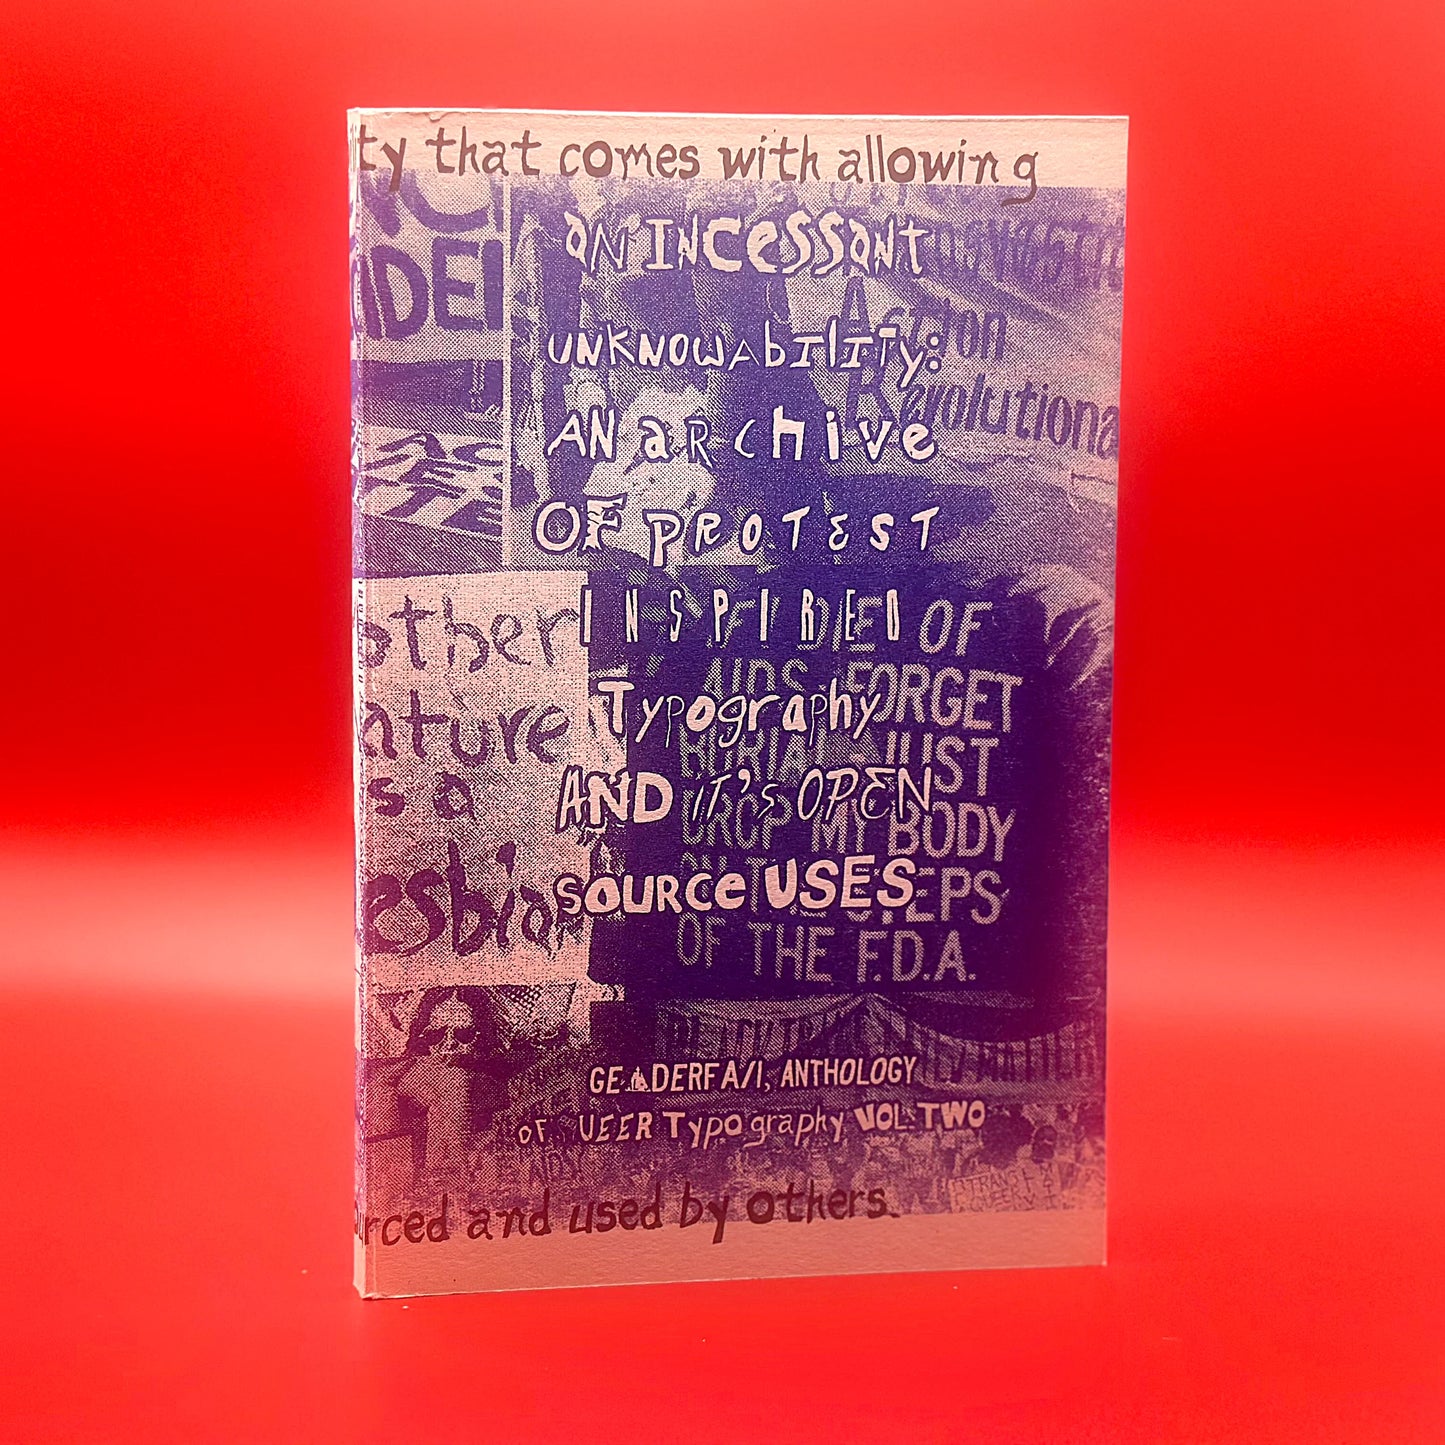 ty that comes with allowing
AN INCESSANT
UNKNOWABILITY:
AN ARCHIVE
OF PROTEST
INSPIRED
Typography
AND IT'S OPEN
SOURCE USES
Action
Revolutiona
IDEI
other
ature
s a
esbian
DIED OF
AIDS FORGET
BURIAL JUST
DROP MY BODY
ON THE STEPS
OF THE F.D.A.
GENDERFAIL, ANTHOLOGY
OF QUEER Typography VOL. TWO
TRANS
urced and used by others.